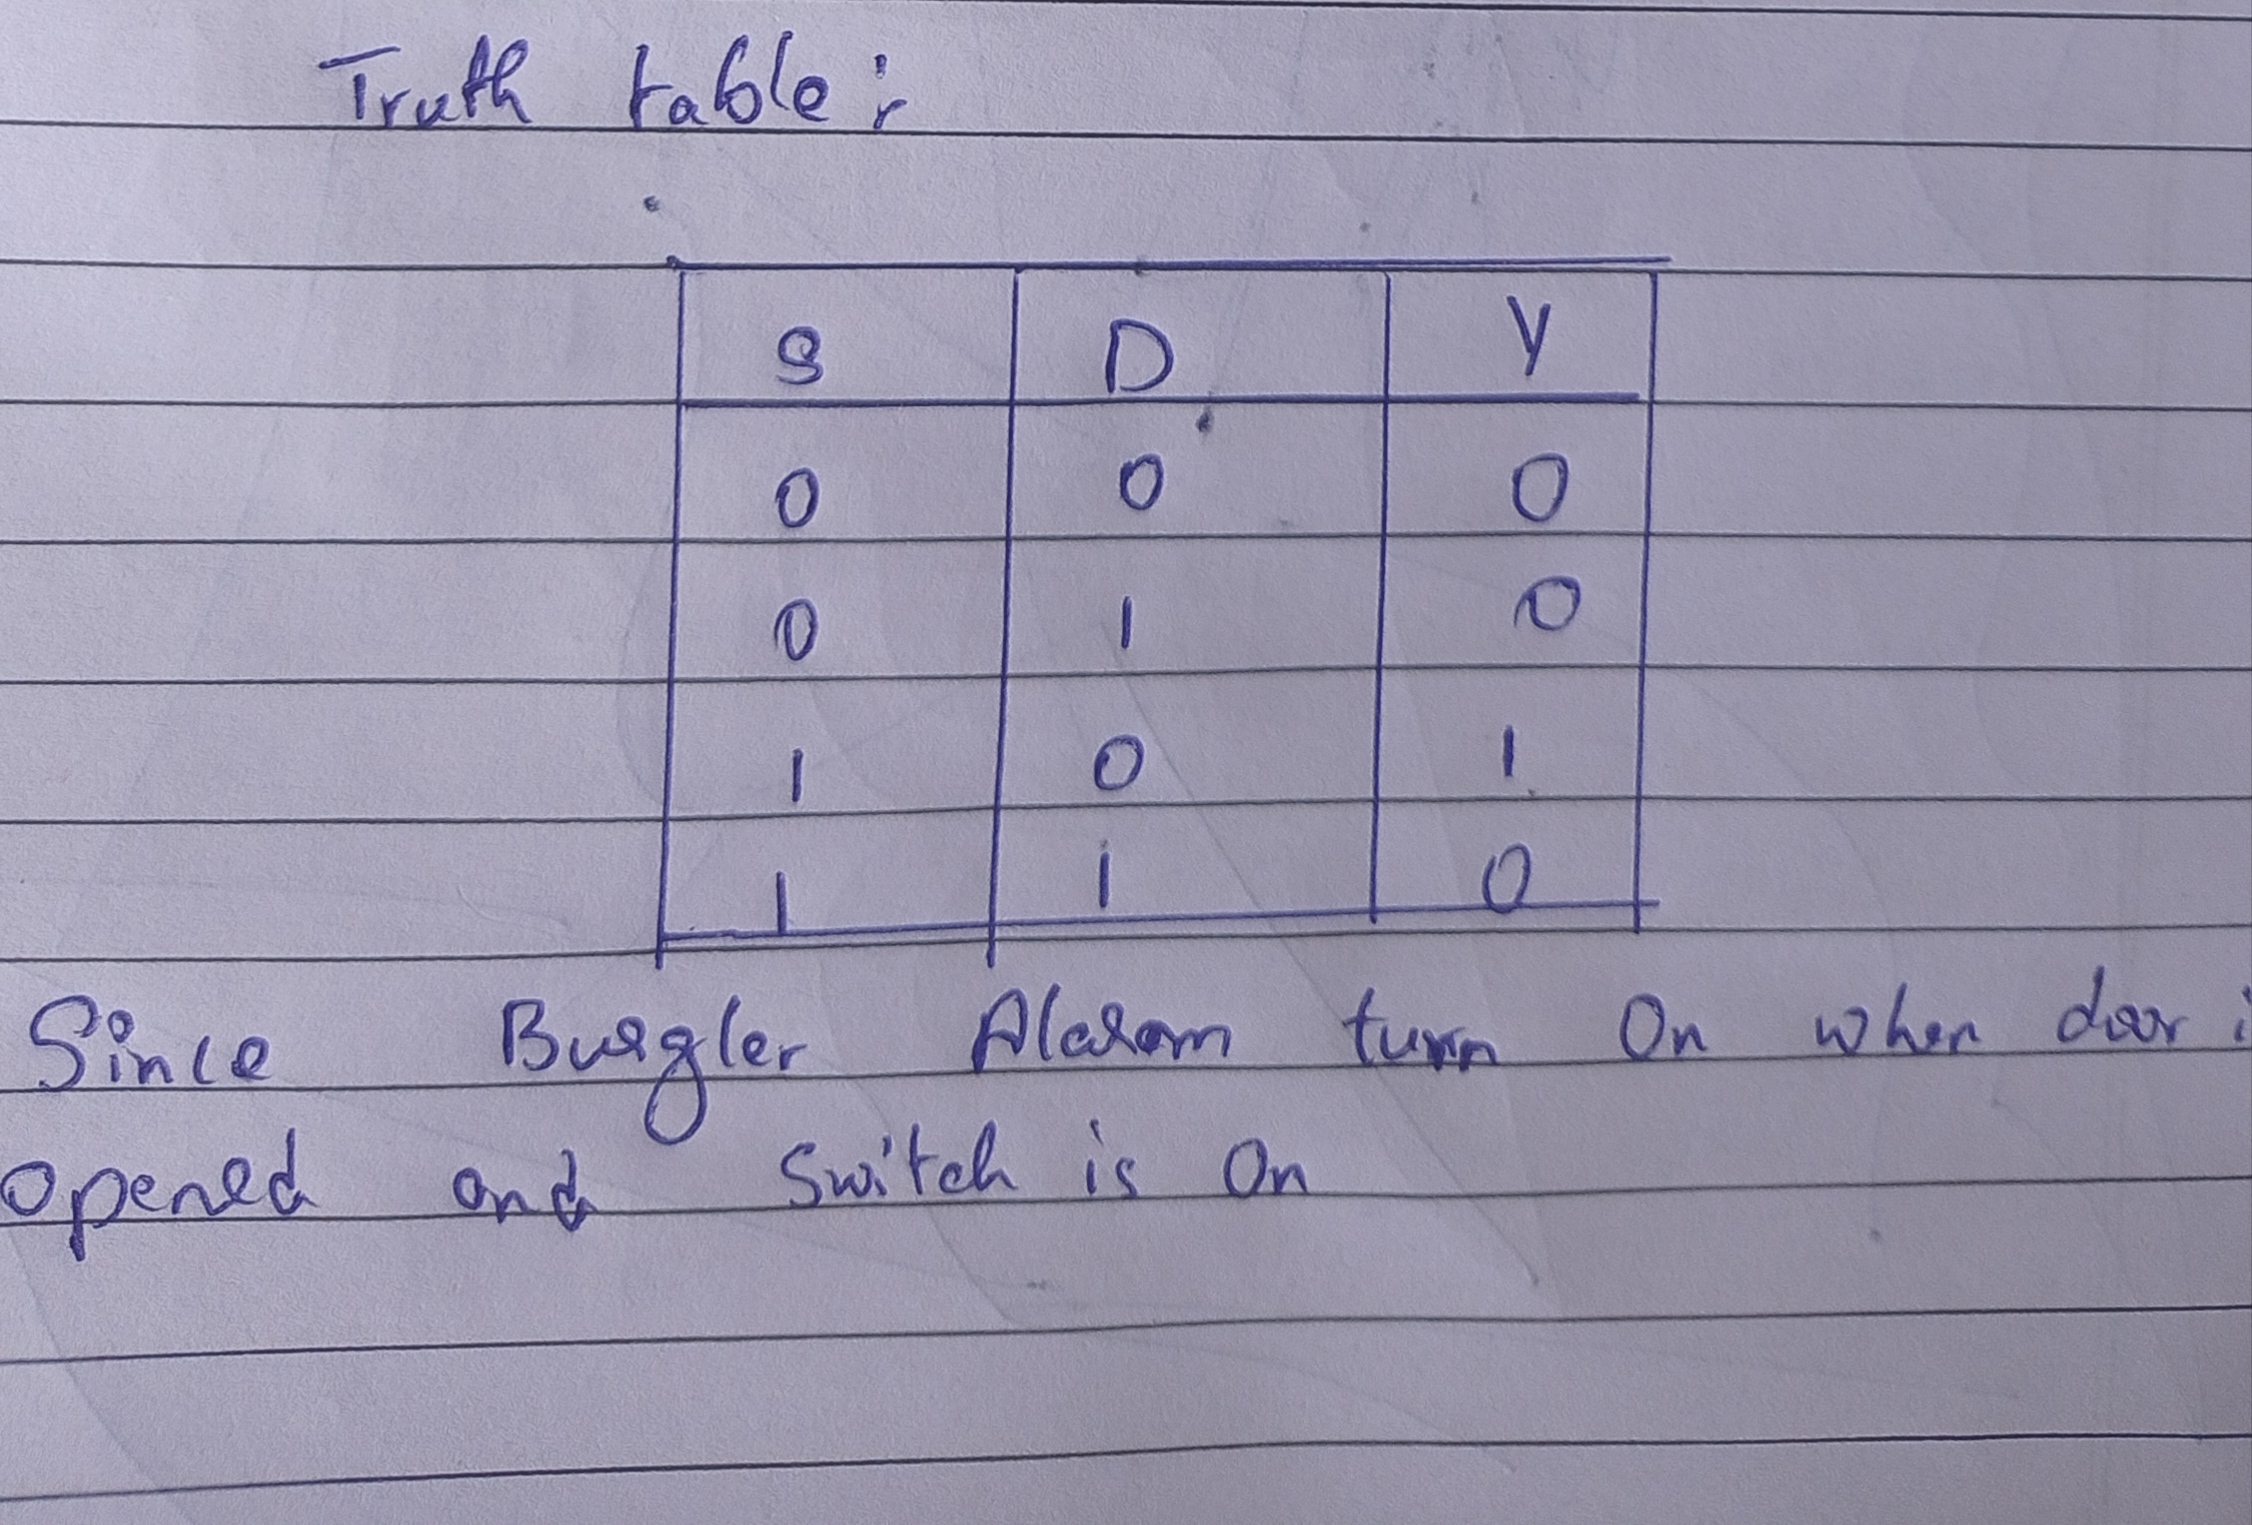 Truth table:
S D Y
0 0 0
0 1 0
1 0 1
1 1 0
Since Burgler Alarom turn On when door i
opened and Switch is On